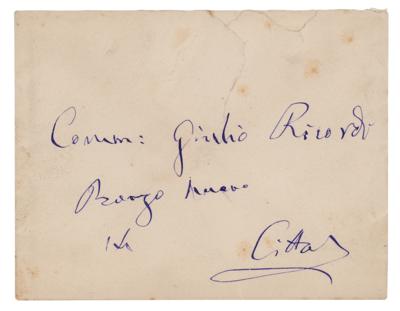 Comm: Giulio Ricordi
Borgo nuovo
Città